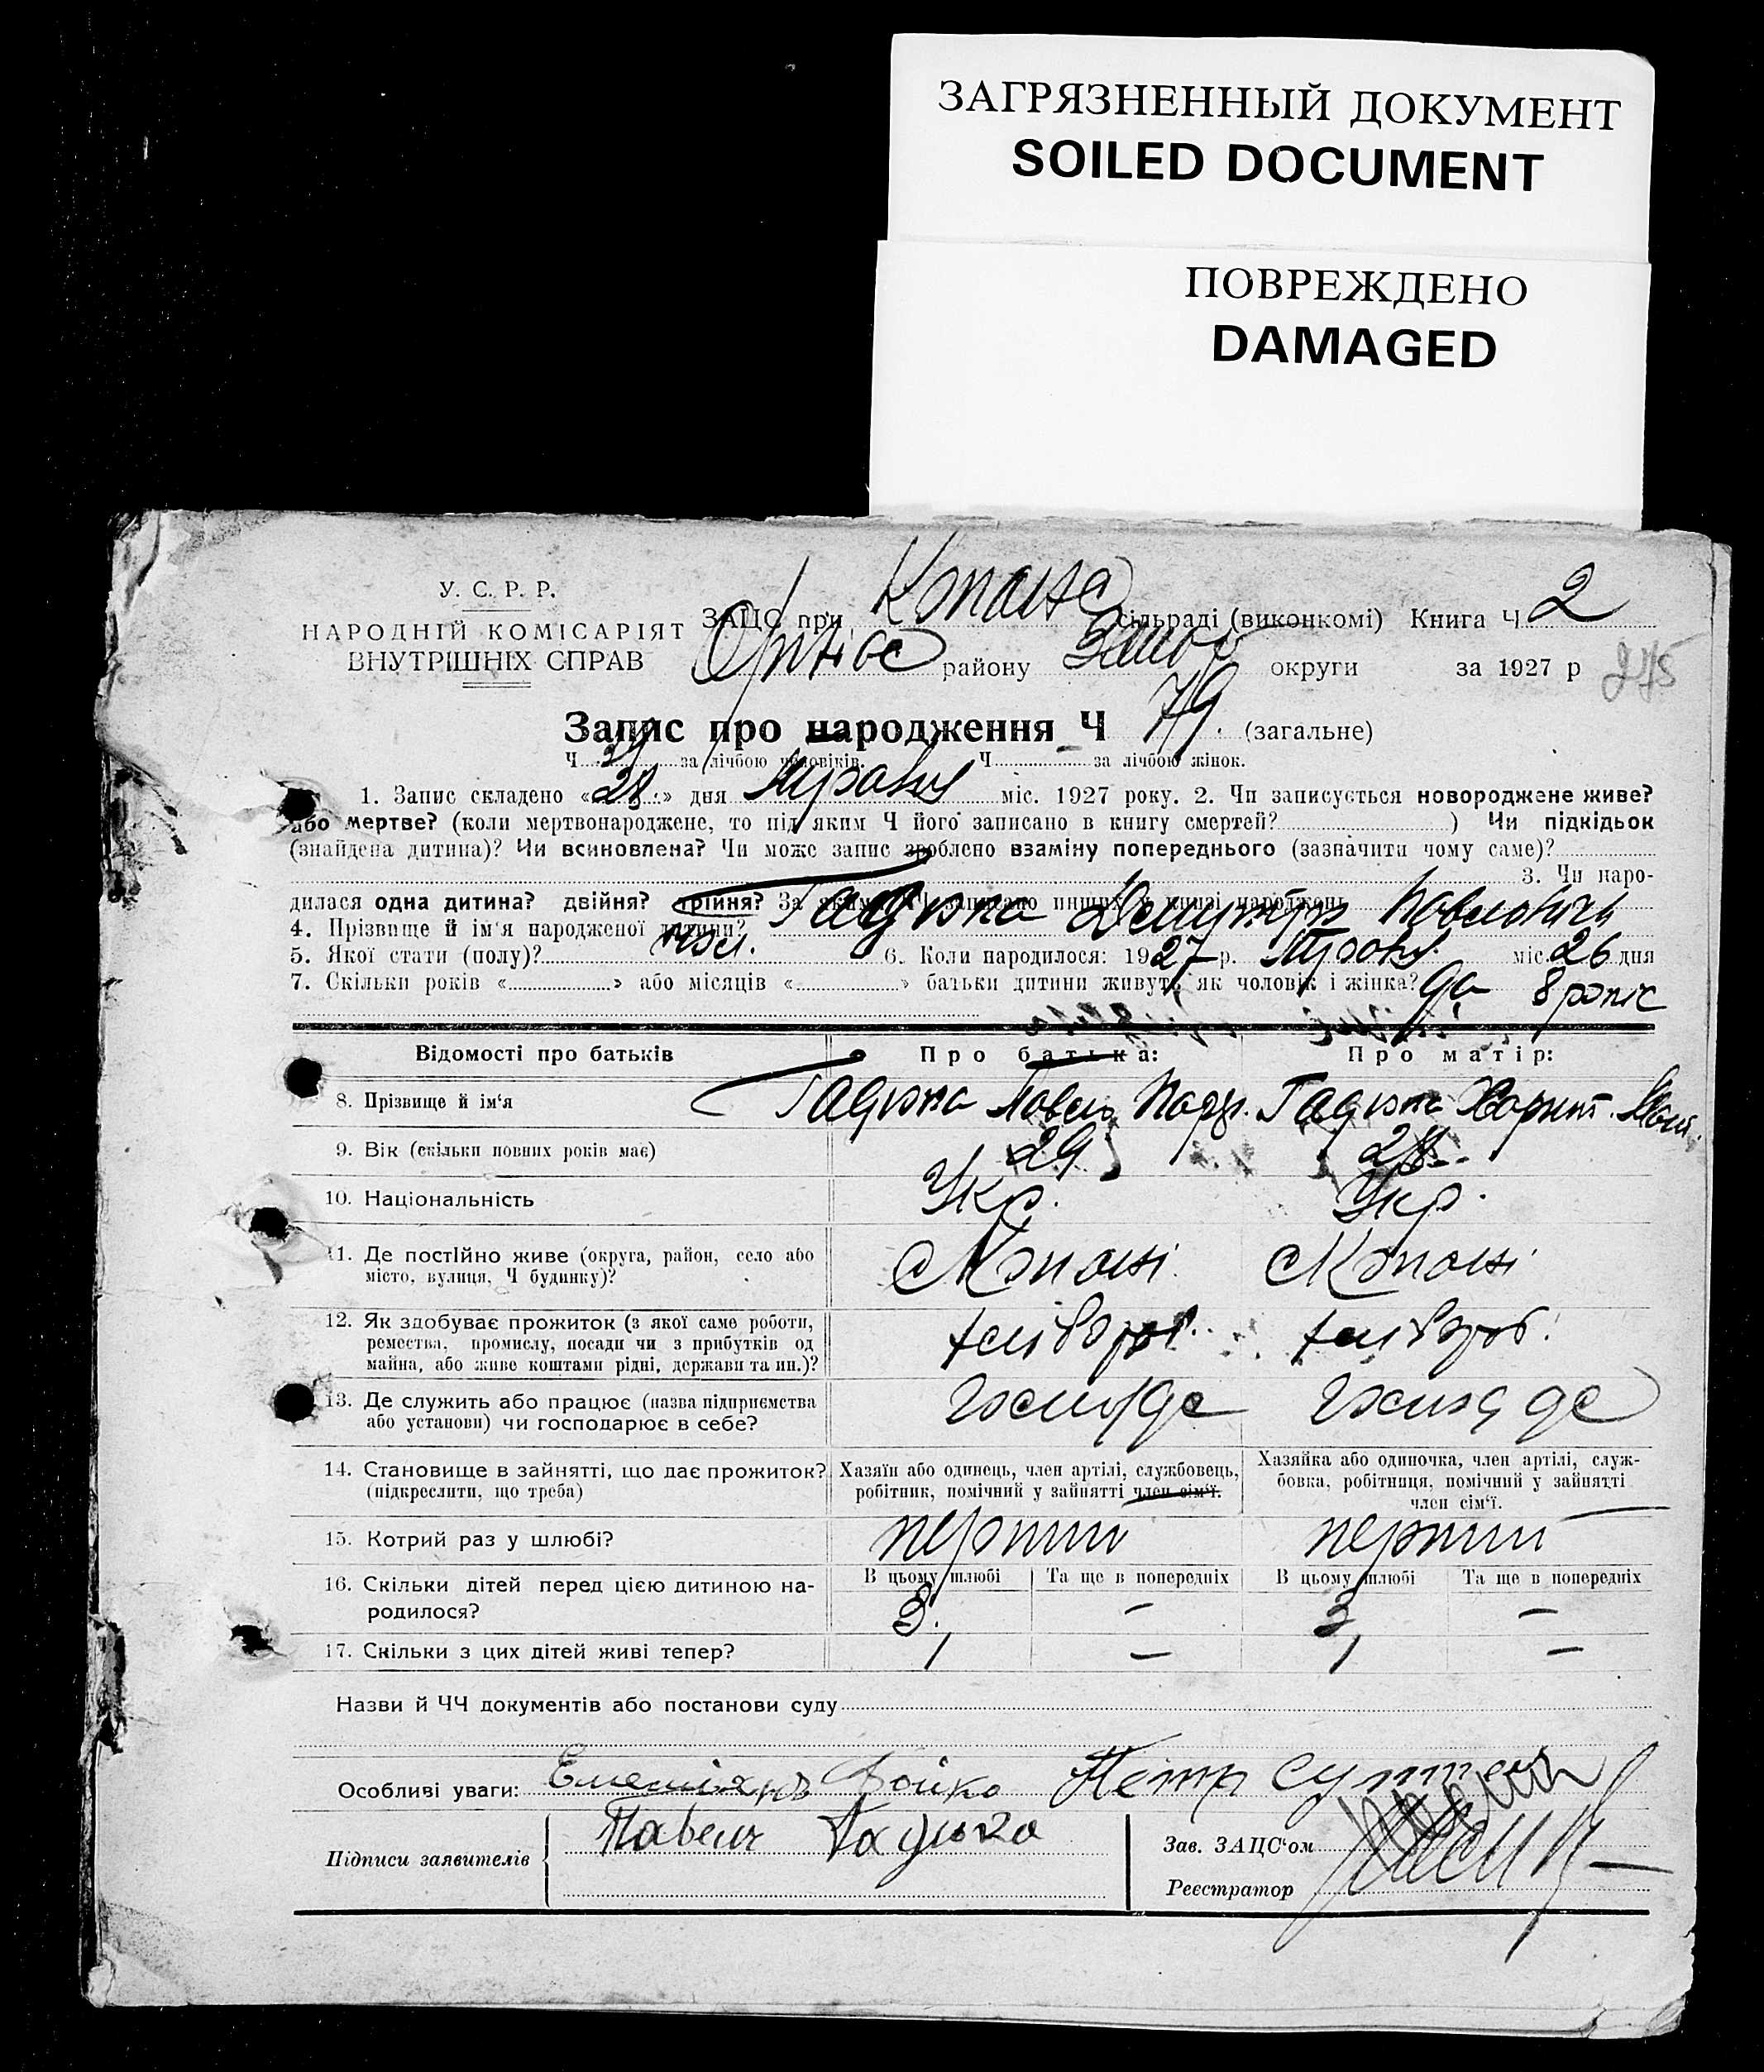 ЗАГРЯЗНЕННЫЙ ДОКУМЕНТ
SOILED DOCUMENT
ПОВРЕЖДЕНО
DAMAGED
У. С. Р. Р.
НАРОДНІЙ КОМІСАРІЯТ
ВНУТРІШНІХ СПРАВ
ЗАЦС при сільраді (виконкомі) Книга Ч 2
району округи за 1927 р 275
Запис про народження Ч 79 (загальне)
Ч за лічбою чоловіків. Ч за лічбою жінок.
1. Запис складено «28» дня Травня міс. 1927 року. 2. Чи записується новороджене живе?
або мертве? (коли мертвонароджене, то під яким Ч його записано в книгу смертей? ) Чи підкідьок
(знайдена дитина)? Чи всиновлена? Чи може запис зроблено взаміну попереднього (зазначити чому саме)?
3. Чи наро-
дилася одна дитина? двійня? трійня? За яким ЧЧ записано инших у книзі народжень
4. Прізвище й ім'я народженої дитини? Гадюка Дмитро Павлович
5. Якої статі (полу)? чол. 6. Коли народилося: 1927 р. Травн. міс. 26 дня
7. Скільки років « » або місяців « » батьки дитини живуть як чоловік і жінка? да 8 років
Відомості про батьків Про батька: Про матір:
8. Прізвище й ім'я Гадюка Павло Гадюка
9. Вік (скільки повних років має) 29 28
10. Національність Укр. Укр.
11. Де постійно живе (округа, район, село або
місто, вулиця, Ч будинку)? с Копані с Копані
12. Як здобуває прожиток (з якої саме роботи,
ремества, промислу, посади чи з прибутків од
майна, або живе коштами рідні, держави та ин.)? хлібороб. хлібороб.
13. Де служить або працює (назва підприємства
або установи) чи господарює в себе?
14. Становище в зайнятті, що дає прожиток?
(підкреслити, що треба)
Хазяїн або одинець, член артілі, службовець,
робітник, помічний у зайнятті член сім'ї.
Хазяйка або одиночка, член артілі, служ-
бовка, робітниця, помічний у зайнятті
член сім'ї.
15. Котрий раз у шлюбі? перший перший
16. Скільки дітей перед цією дитиною на-
родилося?
В цьому шлюбі Та ще в попередніх В цьому шлюбі Та ще в попередніх
3. — 3 —
17. Скільки з цих дітей живі тепер? 1 — 1 —
Назви й ЧЧ документів або постанови суду
Особливі уваги: Бойко Петр
Підписи заявителів Павел Гадюка
Зав. ЗАЦС'ом
Реєстратор